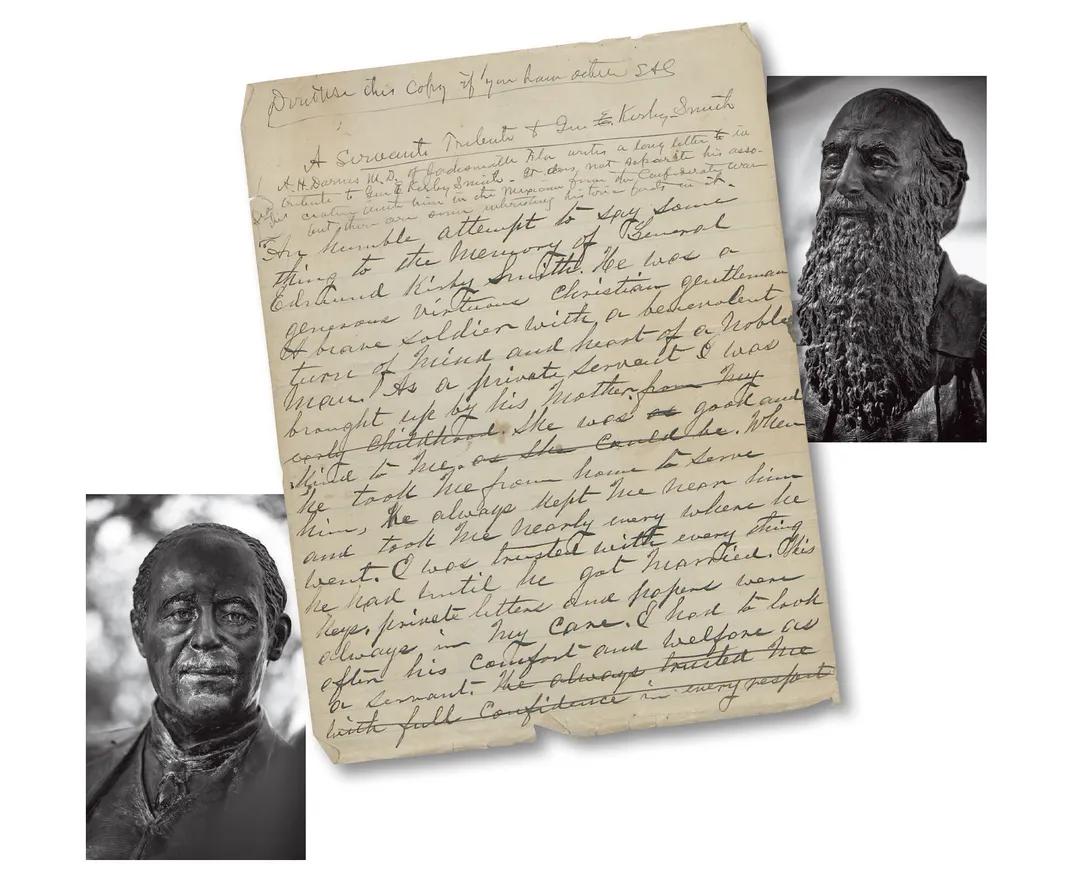 Don't use this copy if you have other SAC
A Servants Tribute to Gen E. Kirby Smith
A. H. Darnes M.D. of Jacksonville Fla writes a long letter in
tribute to Gen E Kirby Smith. It does not separate his asso-
with him in the Mexican from the Confederate war
but there are some interesting historic facts in it.
An humble attempt to say some
thing to the Memory of General
Edmund Kirby Smith. He was a
generous virtuous Christian gentleman
A brave soldier with a benevolent
turn of Mind and heart of a Noble
Man. As a private servant I was
brought up by his Mother from My
early Childhood. She was as good and
kind to Me. as She Could be. When
he took Me from home to serve
him, He always kept Me near him
and took Me nearly every where he
went. I was trusted with every thing
he had until he got Married. His
keys, private letters and papers were
always in My Care. I had to look
after his comfort and welfare as
a servant. He always trusted Me
with full Confidence in every respect